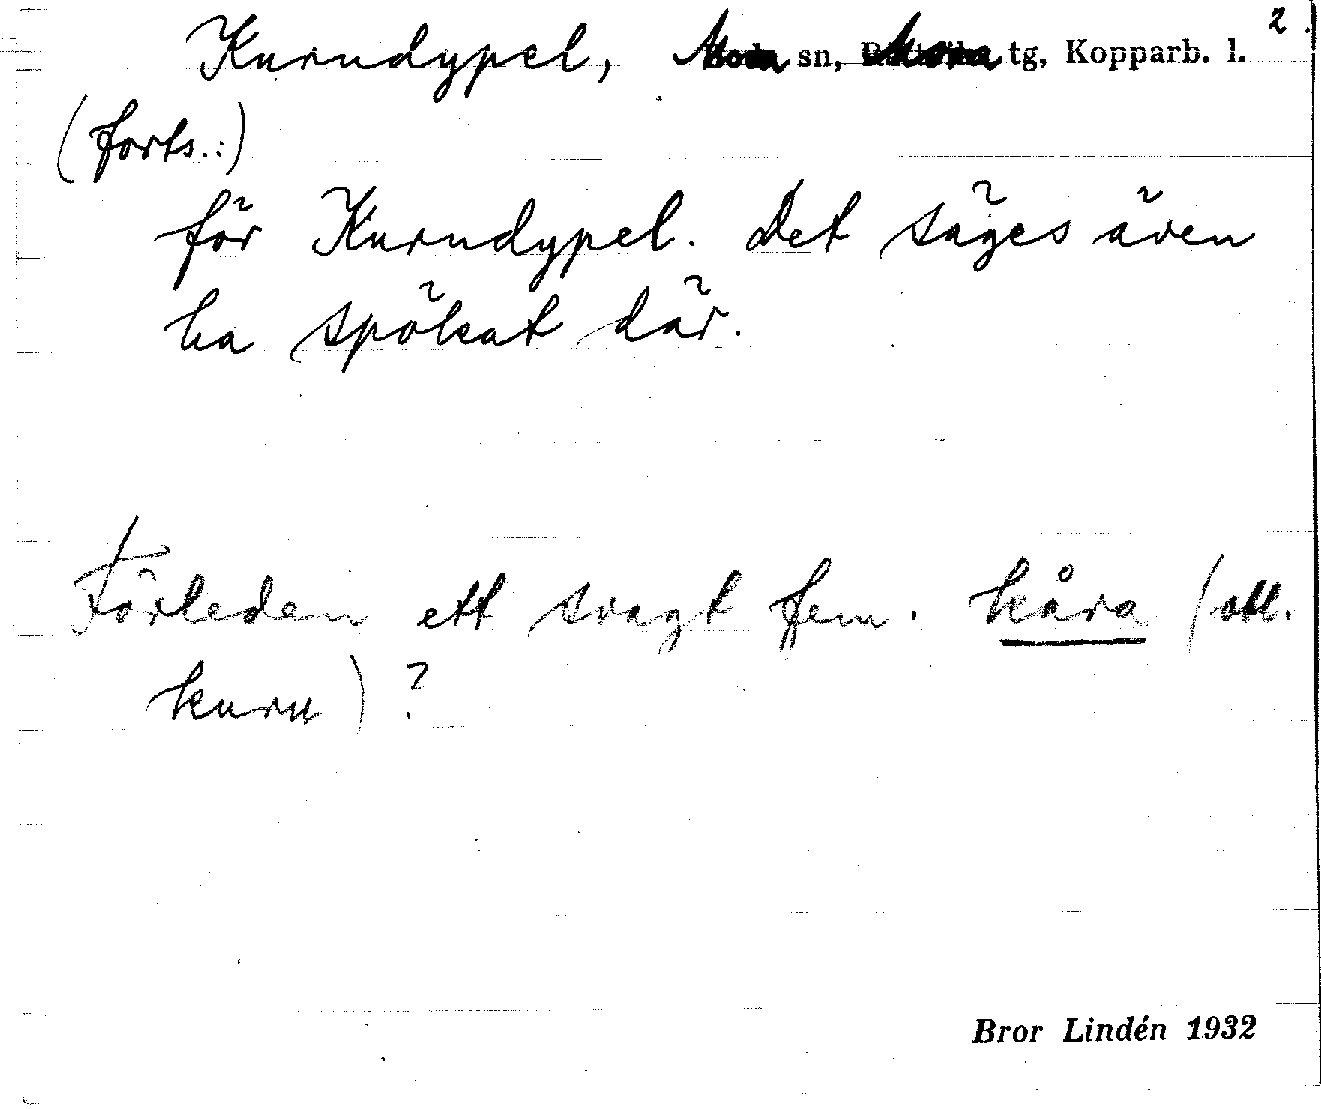 2.
Kurudypel, Mora sn, Mora tg, Kopparb. l.
(forts.:)
för Kurudypel. Det säges även
ha spökat där.
Förleden ett svagt fem. kåra (obl.
kuru)?
Bror Lindén 1932